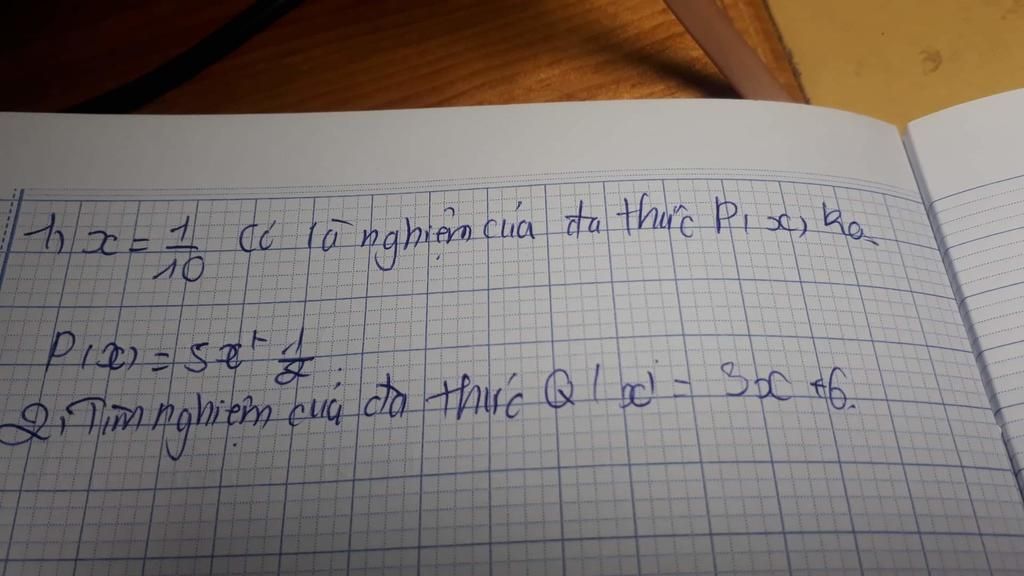 1, x = 1/10 Có là nghiệm của đa thức P(x) ko
P(x) = 5x + 1/2.
2, Tìm nghiệm của đa thức Q(x) = 3x + 6.